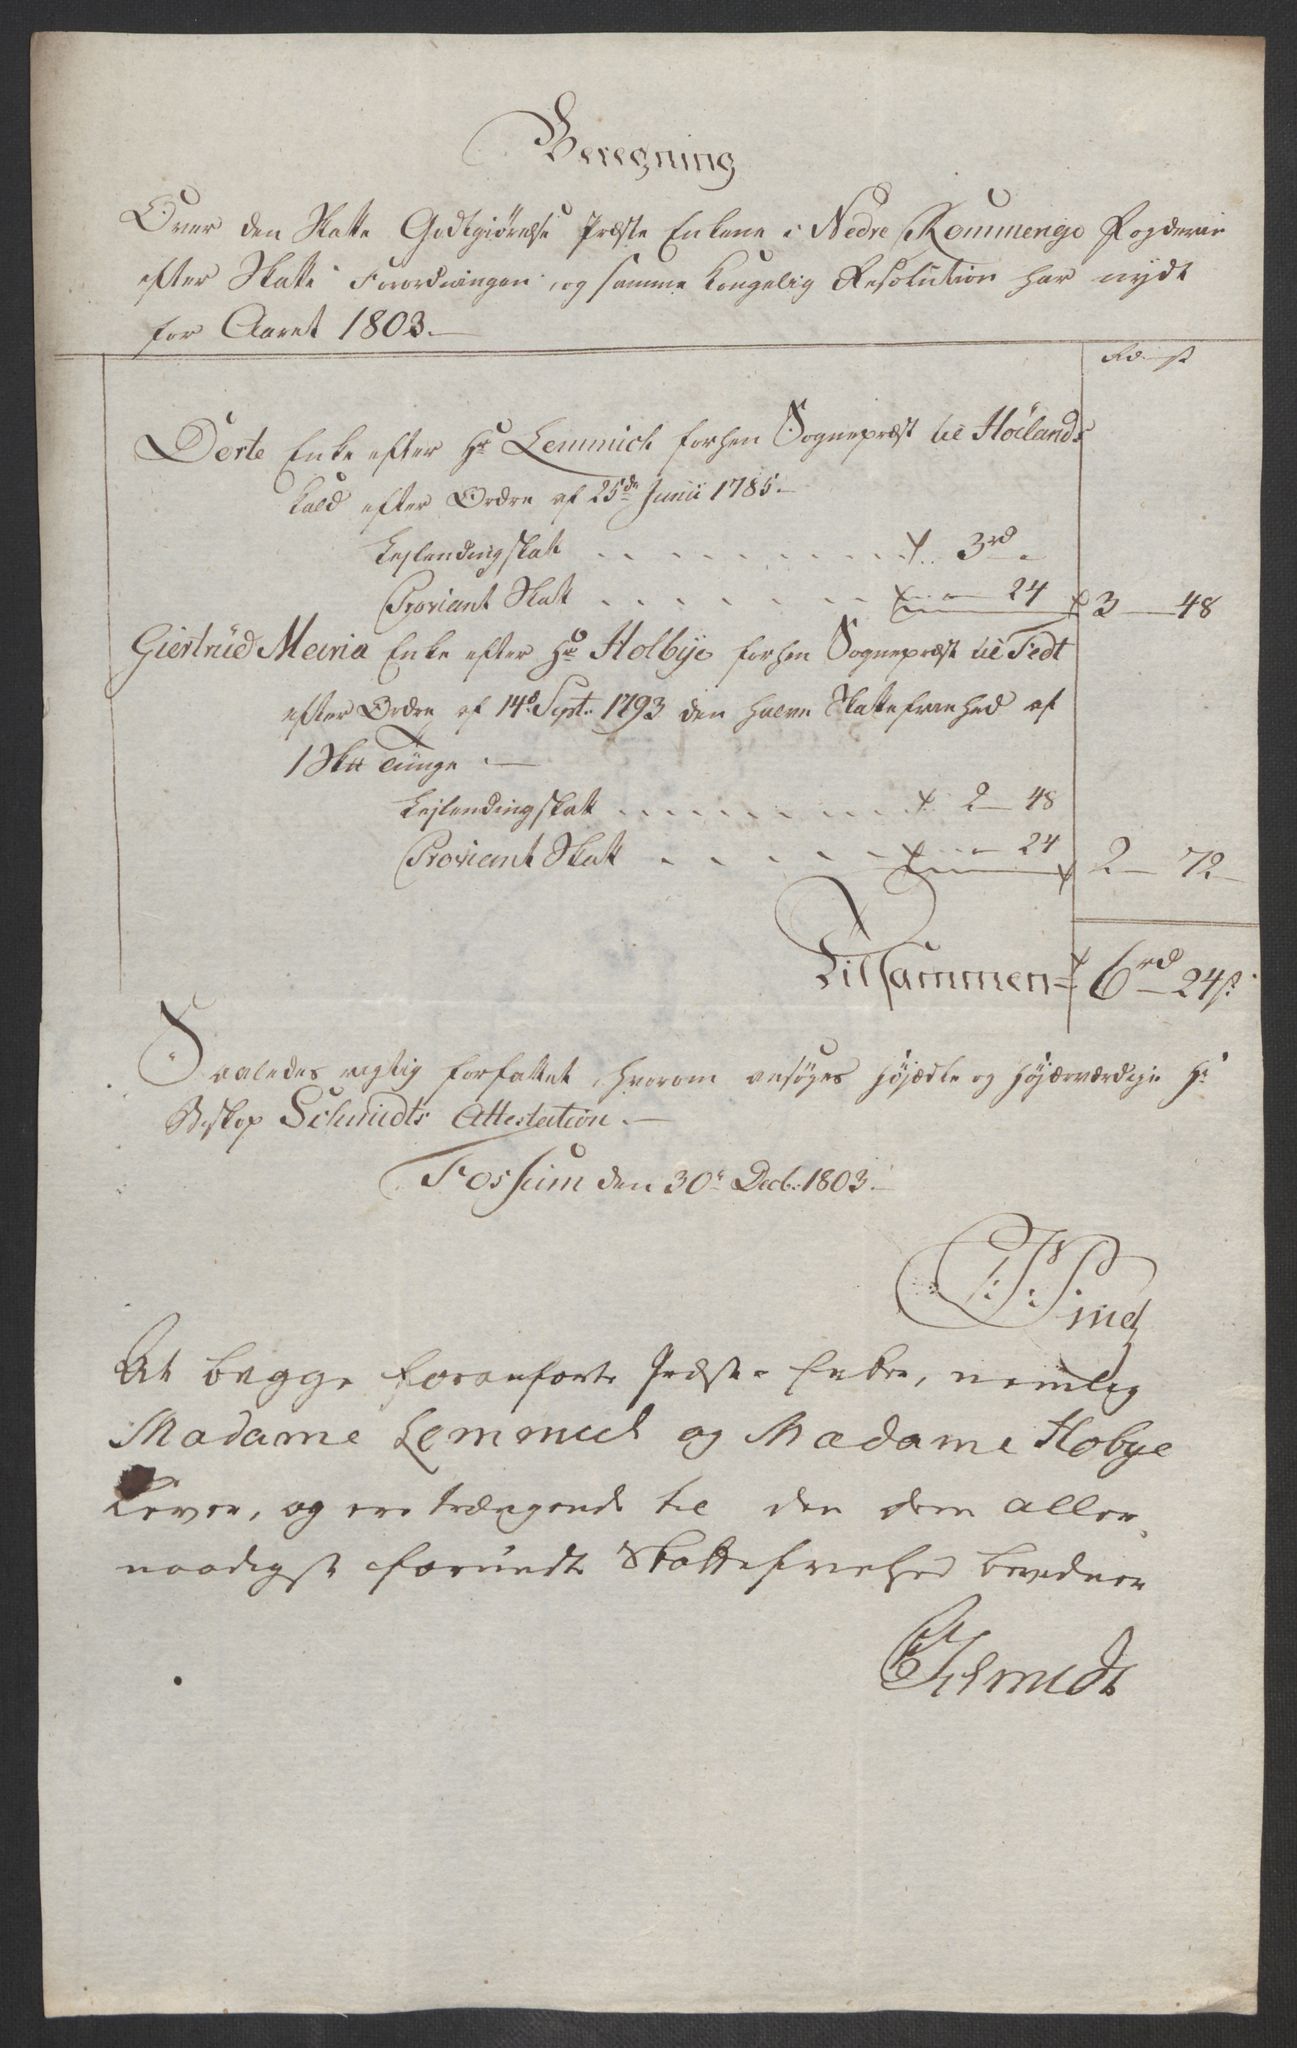 Beregning
Over den Skatte Godtgiørelse Præste Enkene i Nedre Rommerige Fogderie
efter Skatte Forordningen, og samme kongelig Resolution har nydt
for Aaret 1803.
Rd ß
Dorte Enke efter Hr Lemmich forhen Sognepræst til Høilands
Kald efter Ordre af 25de Junii 1785.
Leylendingskatt 3rd
Proviant Skatt 24 3 48
Giertrud Maria Enke efter Hr Holbye forhen Sognepræst til Fedt
efter Ordre af 14de Septr 1793 den halve Skattefriehed af
1 Sktt Tünge
Leylendingskatt 2 48
Proviant Skatt 24 2 72
Tilsammen 6rd 24ß
Saaledes rigtig forfattet, hvorom ansøges Højædle og Højærværdige Hr
Biskop Schmidts Attestation.
Fossum den 30te Decb: 1803.
At begge foranførte Præste Enker, nemlig
Madame Lemmich og Madame Hobye
Lever, og ere trængende til den dem aller
naadigst forundte Skattefriehed bevidner
Schmidt